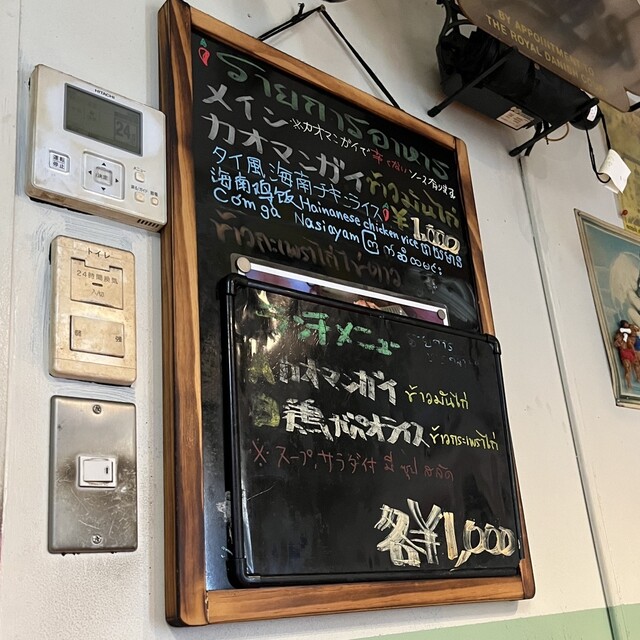 HITACHI
24
運転
停止
トイレ
24時間換気
入/切
BY APPOINTMENT TO
THE ROYAL DANISH
รายการอาหาร
メイン
カオマンガイ ข้าวมันไก่
¥1,000
タイ風 海南チキンライス
海南鸡饭 Hainanese chicken rice
Cơm gà Nasiayam
ข้าวกะเพราไก่ไข่ดาว
ランチメニュー รายการ
カオマンガイ ข้าวมันไก่
鶏ガパオライス ข้าวกระเพราไก่
※スープ,サラダ付 มี ซุป สลัด
各¥1,000